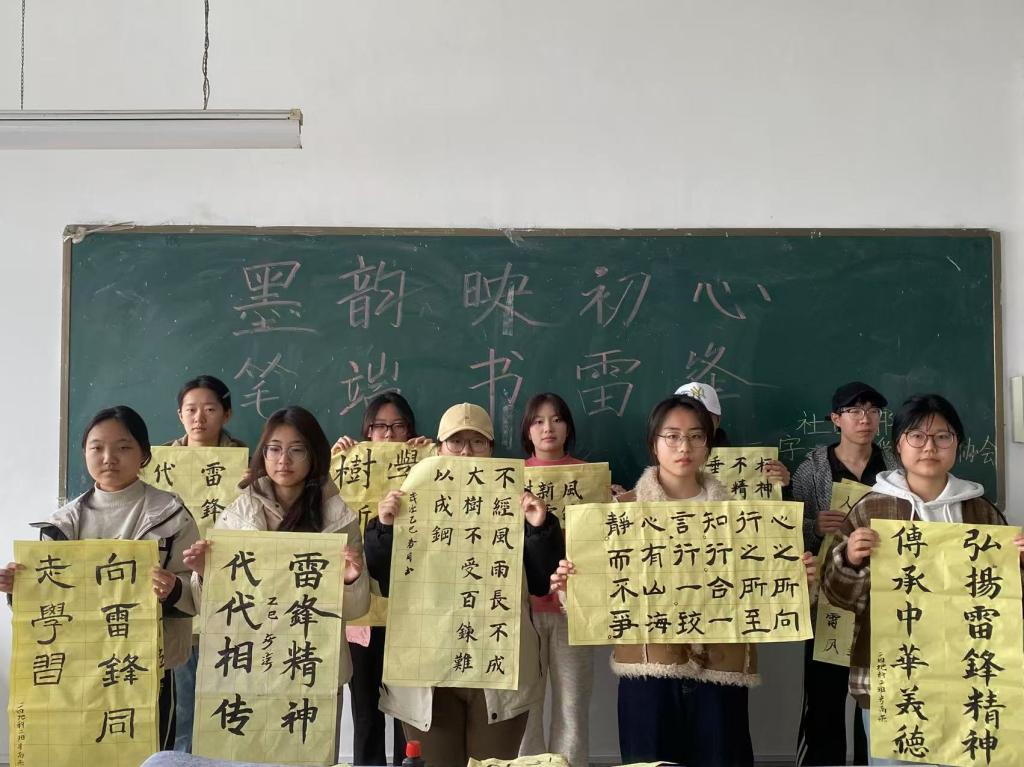 墨韵映初心
笔端书雷锋
社
字
协会
雷锋
代
學
樹
新風
不
精神
垂
向雷鋒同
走學習
雷鋒精神
代代相传
乙巳
不經風雨長不成
大樹不受百鍊難
以成鋼
乙巳
心之所向
行之所至
知行合一
言行一致
心有山海
靜而不爭
弘揚雷鋒精神
傳承中華義德